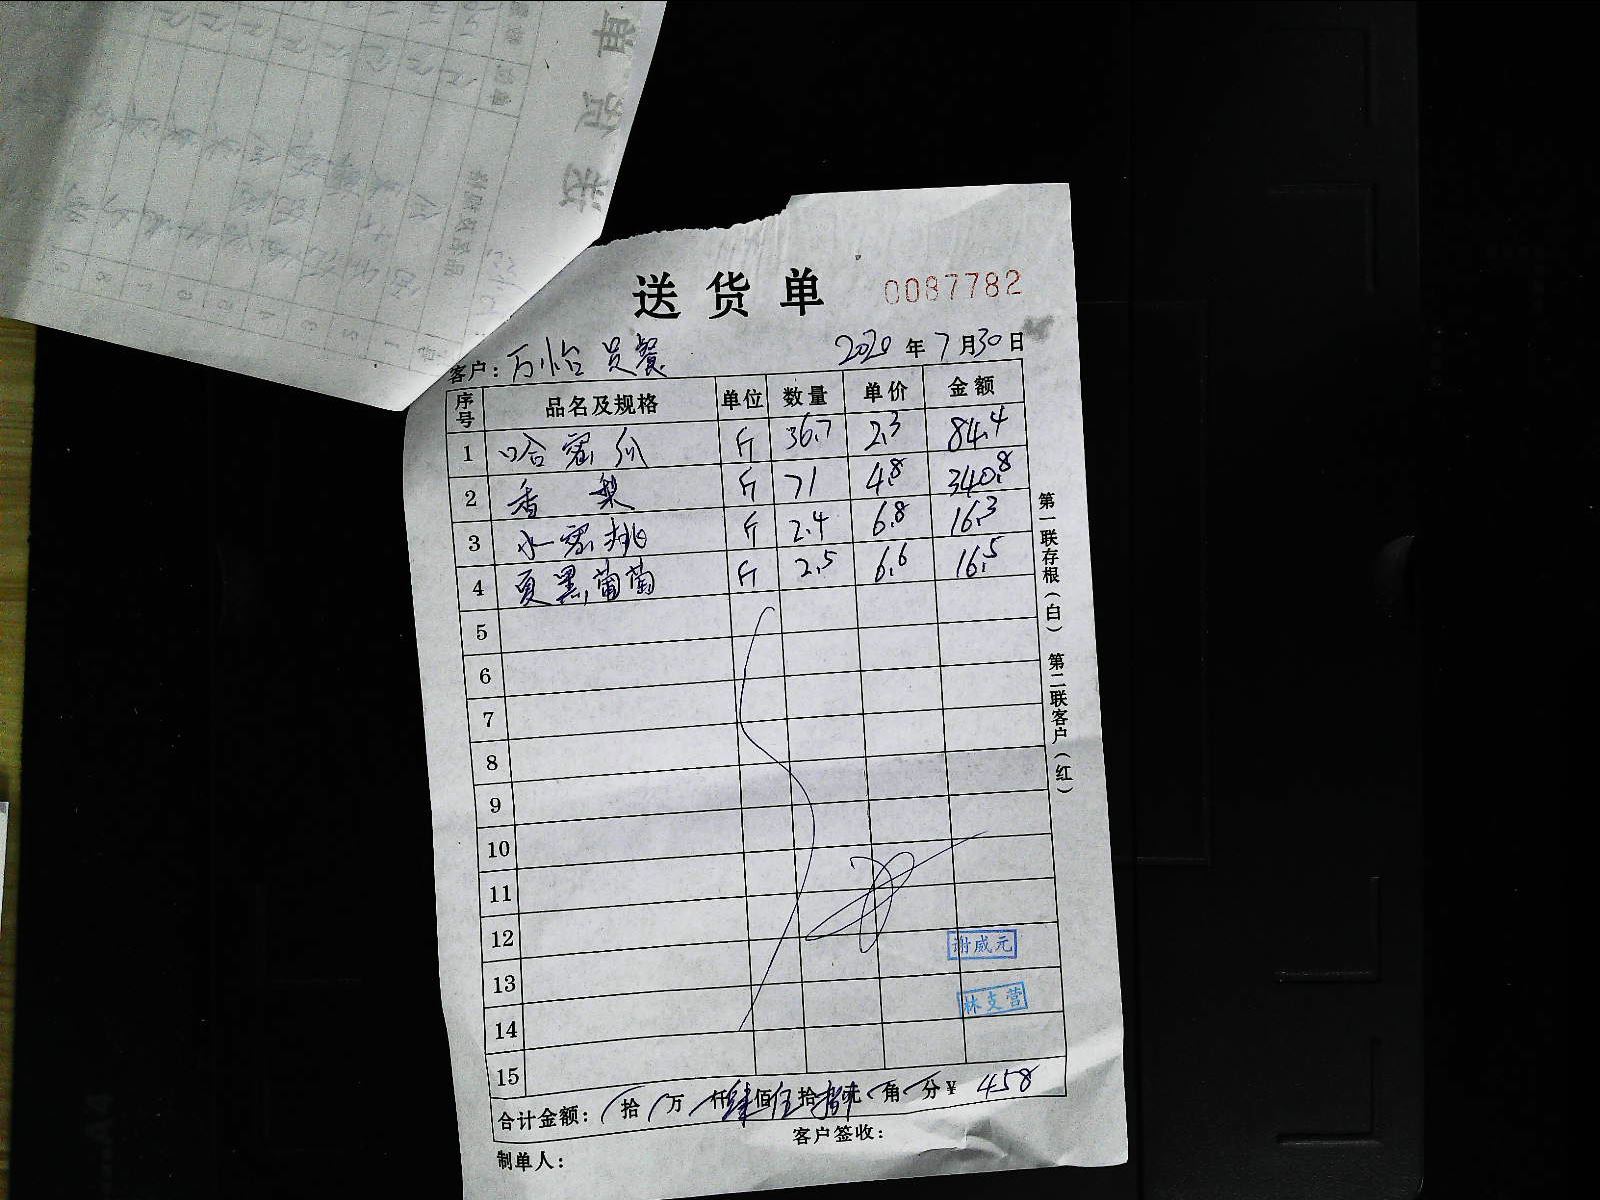 送货单 0087782
客户：万怡员餐 2020年7月30日
序号 品名及规格 单位 数量 单价 金额
1 哈密瓜 斤 36.7 2.3 84.4
2 香梨 斤 71 4.8 340.8
3 水蜜桃 斤 2.4 6.8 16.3
4 夏黑葡萄 斤 2.5 6.6 16.5
5
6
7
8
9
10
11
12
13
14
15
谢威元
林支营
合计金额： 拾 万 仟肆佰伍拾捌元 角 分￥ 458
客户签收：
制单人：
第一联存根（白） 第二联客户（红）